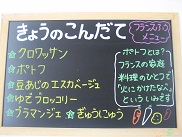 きょうのこんだて
フランスふう
メニュー
☆クロワッサン
☆ポトフ
☆豆あじのエスカベージュ
☆ゆでブロッコリー
☆ブラマンジェ ☆ぎゅうにゅう
ポトフとは?
フランスの家庭
料理のひとつで
"火にかけたなべ"
といういみです